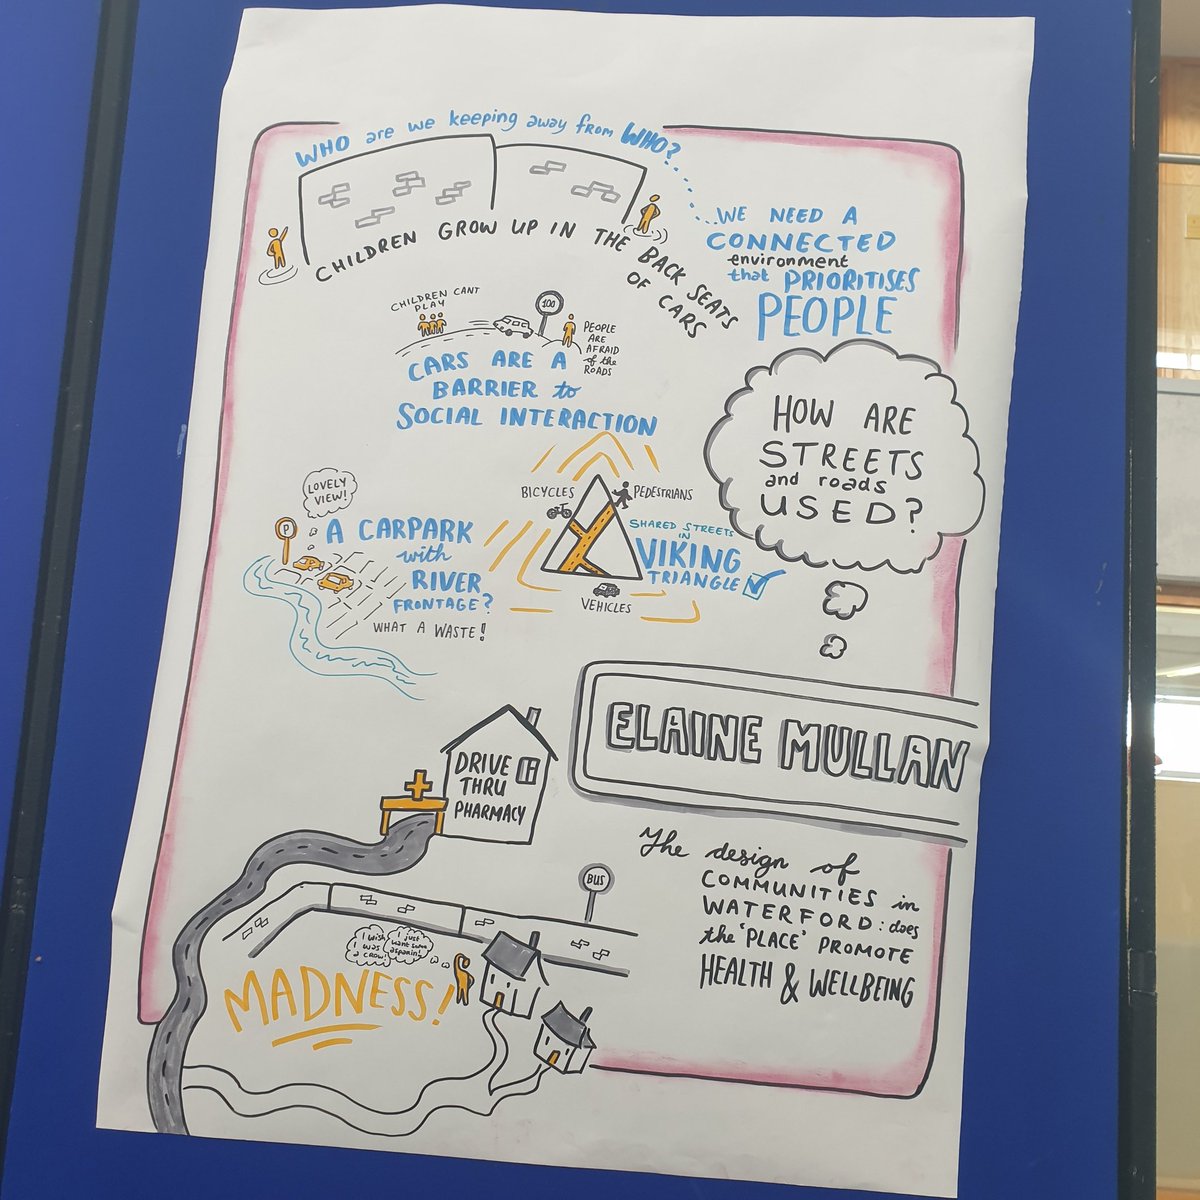 WHO are we keeping away from WHO?
CHILDREN GROW UP IN THE BACK SEATS
OF CARS
...WE NEED A
CONNECTED
environment
that PRIORITISES
PEOPLE
CHILDREN CANT
PLAY
100
PEOPLE
ARE
AFRAID
of the
ROADS
CARS ARE A
BARRIER to
SOCIAL INTERACTION
HOW ARE
STREETS
and roads
USED?
LOVELY
VIEW!
P
A CARPARK
with
RIVER
FRONTAGE?
WHAT A WASTE!
BICYCLES
PEDESTRIANS
VEHICLES
SHARED STREETS
IN
VIKING
TRIANGLE
ELAINE MULLAN
The design of
COMMUNITIES in
WATERFORD: does
the 'PLACE' PROMOTE
HEALTH & WELLBEING
DRIVE
THRU
PHARMACY
BUS
I wish
I was
a crow!
I just
want some
asparin!
MADNESS!